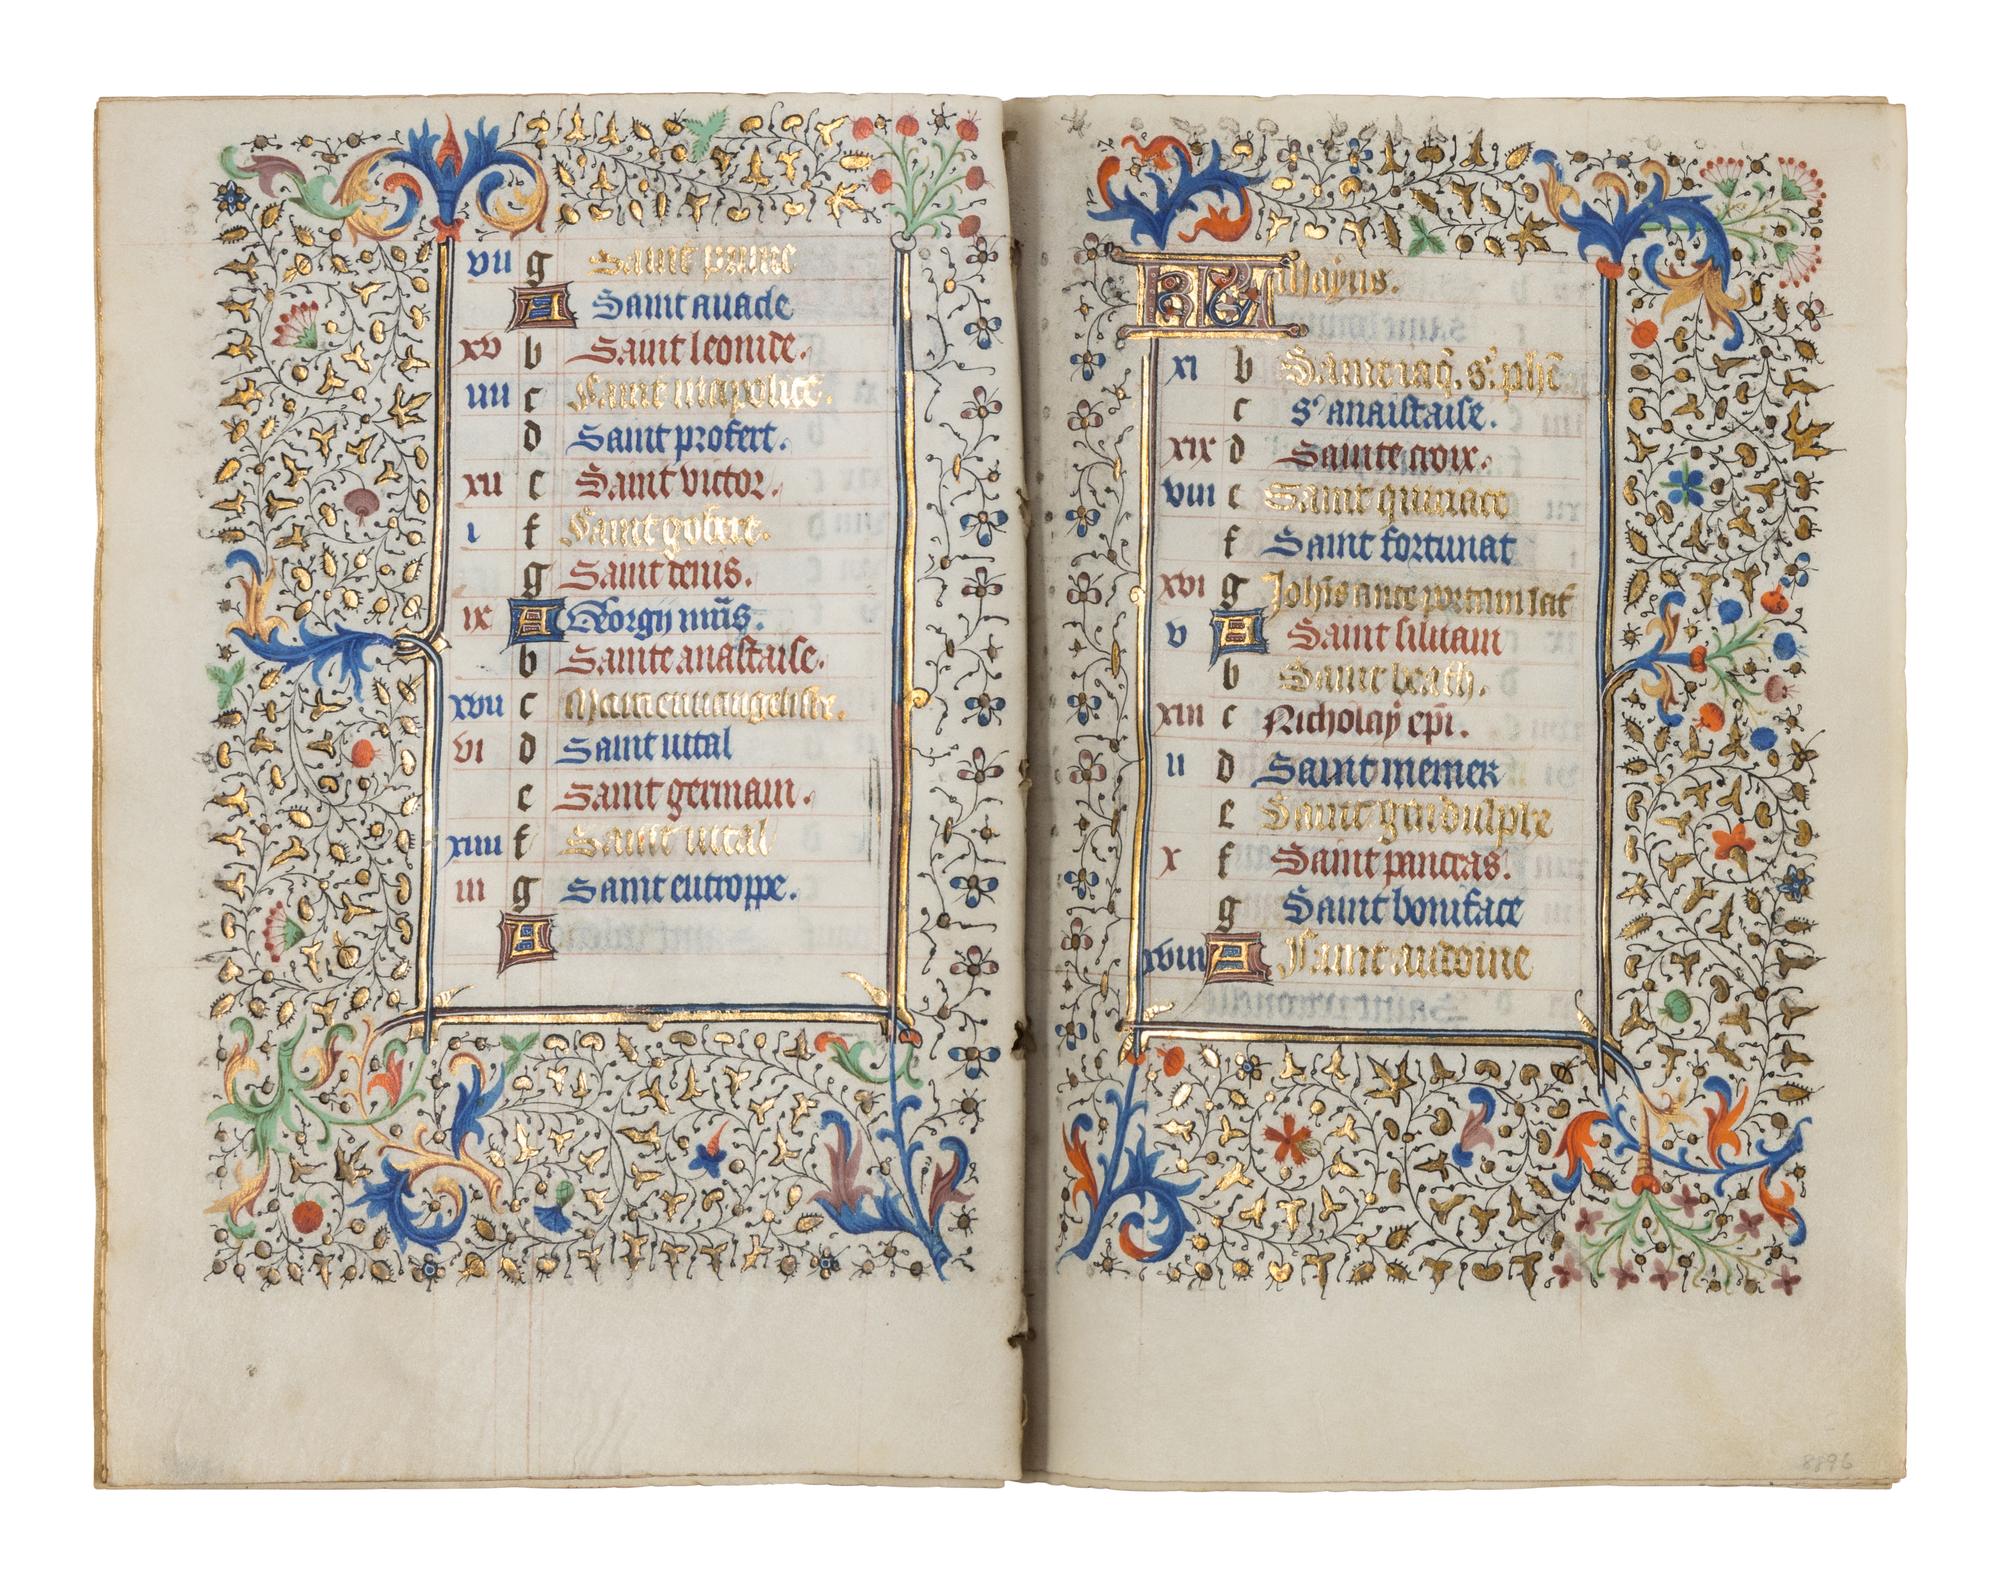 vii g Saint prime
A Saint auade
xv b Saint leonide.
iiii c Saint mapolice.
d Saint profert.
xii e Saint victor.
i f Saint gobert.
g Saint denis.
ix A Georgij mr̃is.
b Sainte anastaise.
xvii c Marc euuangeliste.
vi d Saint uital
e Saint germain.
xiiii f Saint uital
iii g Saint eutroppe.
A
KL Mayus.
xi b Saint iaq̃. s. phẽ
c s anaistaise.
xix d Sainte croix.
viii e Saint quiriace
f Saint fortunat
xvi g Joh̃is ante portam lat̃
v A Saint siluain
b Saint beath.
xiii c Nicholaÿ ep̃i.
ii d Saint memer
e Saint gindulphe
x f Saint pancras.
g Saint boniface
xviii A Saint audoine
8896